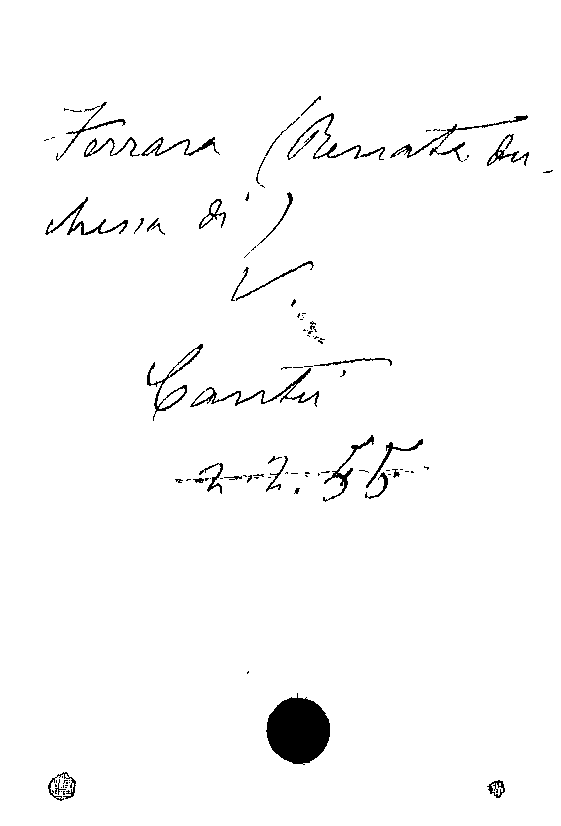 Ferrara (Renata du-
chessa di)
V.
Cantù
22.55